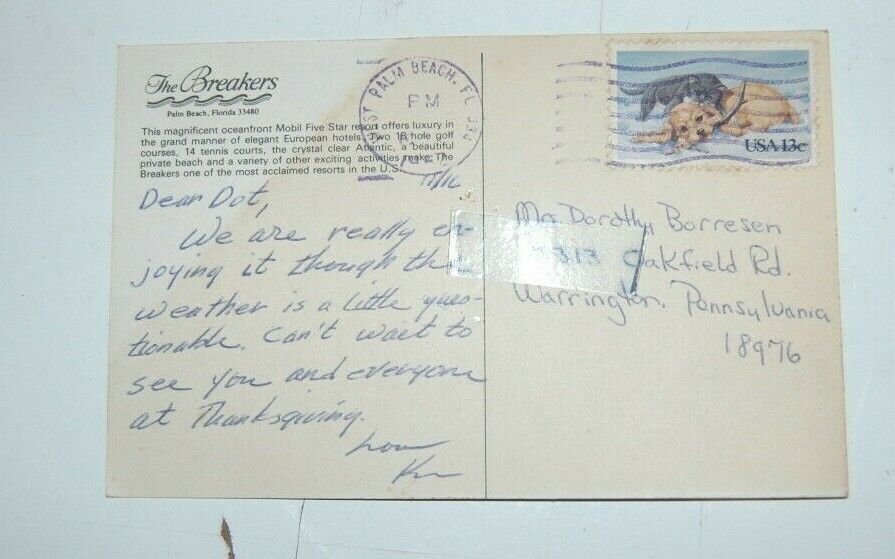 The Breakers
Palm Beach, Florida 33480
This magnificent oceanfront Mobil Five Star resort offers luxury in
the grand manner of elegant European hotels. Two 18 hole golf
courses, 14 tennis courts, the crystal clear Atlantic, a beautiful
private beach and a variety of other exciting activities make The
Breakers one of the most acclaimed resorts in the U.S.
WEST PALM BEACH, FL 334
PM
USA 13c
11/16
Dear Dot,
We are really en-
joying it though the
weather is a little ques-
tionable. Can't wait to
see you and everyone
at Thanksgiving.
Love
Mrs Dorothy Borresen
313 Oakfield Rd.
Warrington, Pennsylvania
18976